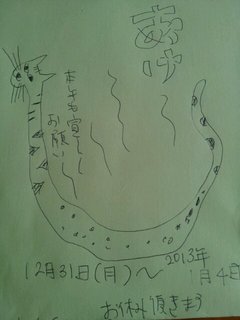 本年も宜しく
お願い
12月31日(月)～
2013年
1月4日
お休み頂きます